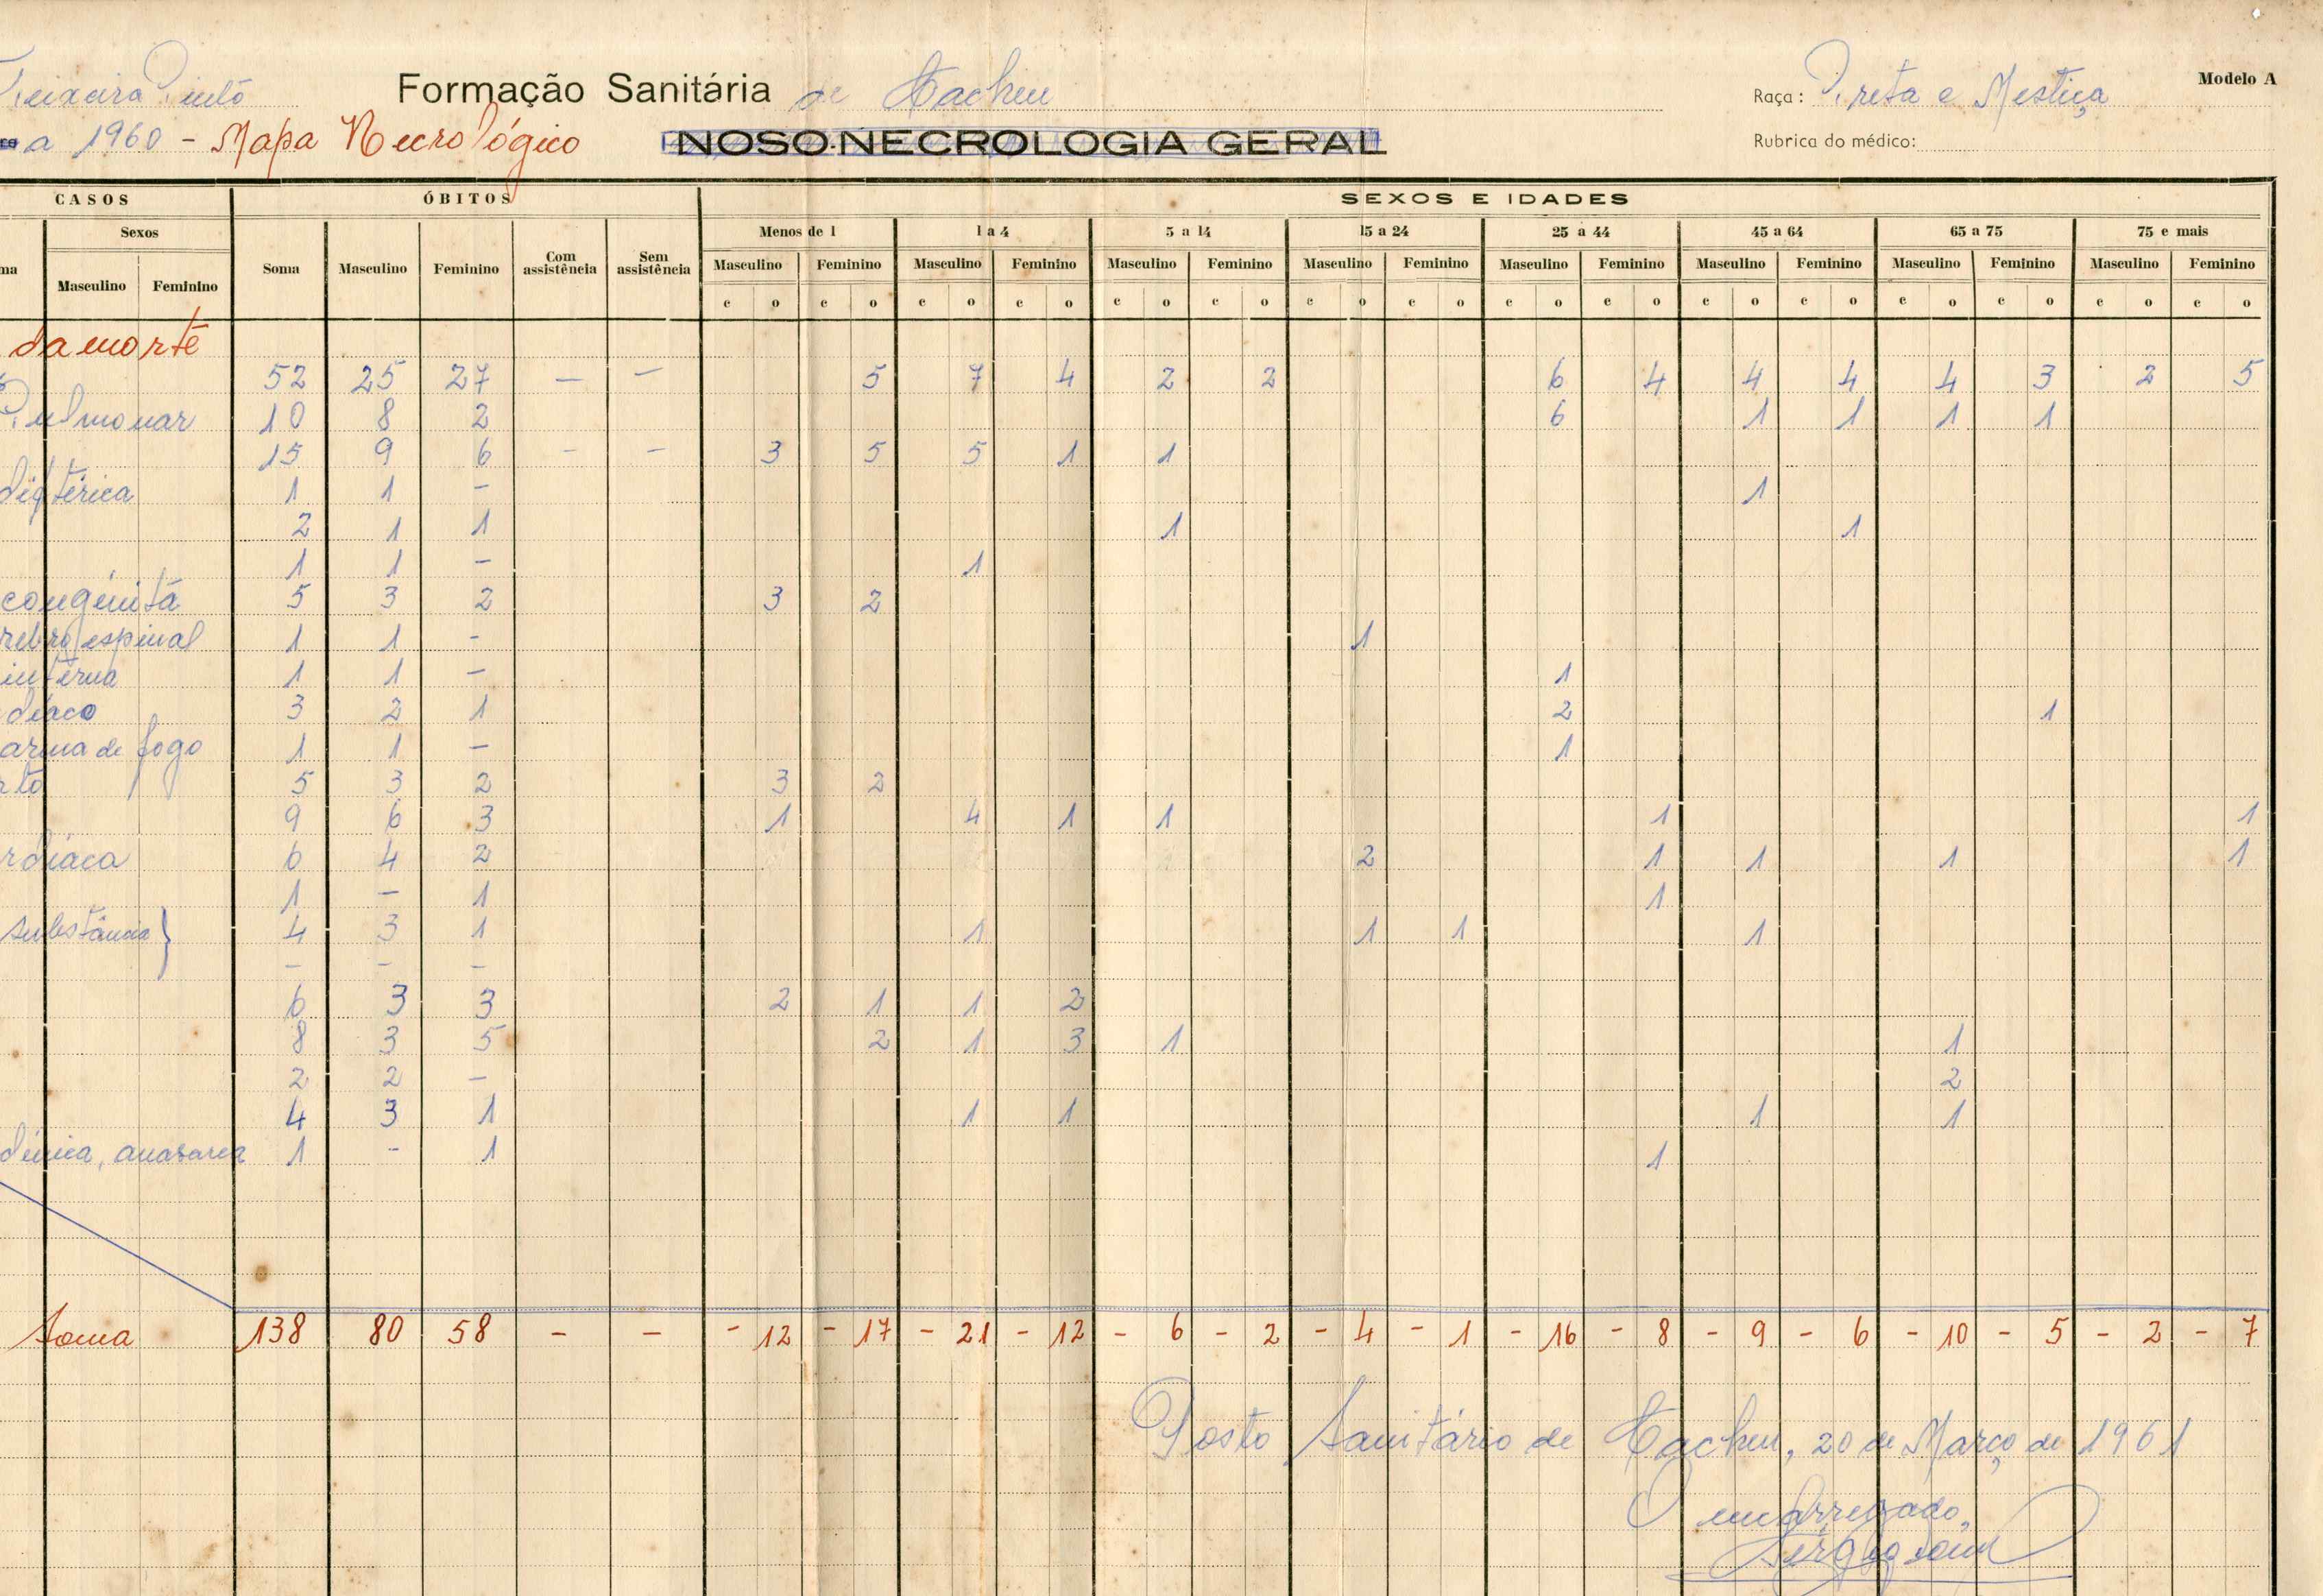 Teixeira Pinto Formação Sanitária de Cacheu Raça: Preta e Mestiça Modelo A
a 1960 - Mapa Necrológico NOSO-NECROLOGIA GERAL Rubrica do médico:
CASOS ÓBITOS SEXOS E IDADES
Sexos Menos de 1 1 a 4 5 a 14 15 a 24 25 a 44 45 a 64 65 a 75 75 e mais
ma Masculino Feminino Soma Masculino Feminino Com assistência Sem assistência Masculino Feminino Masculino Feminino Masculino Feminino Masculino Feminino Masculino Feminino Masculino Feminino Masculino Feminino Masculino Feminino
c o c o c o c o c o c o c o c o c o c o c o c o c o c o c o c o
da morte
52 25 27 — — 5 7 4 2 2 6 4 4 4 4 3 2 5
Pulmonar 10 8 2 6 1 1 1 1
15 9 6 - - 3 5 5 1 1
diftérica 1 1 - 1
2 1 1 1 1
1 1 - 1
congénita 5 3 2 3 2
rebro espinal 1 1 - 1
interna 1 1 - 1
díaco 3 2 1 2 1
arma de fogo 1 1 - 1
rto 5 3 2 3 2
9 6 3 1 4 1 1 1 1
rdíaca 6 4 2 2 1 1 1 1
1 - 1 1
substância } 4 3 1 1 1 1 1
- - -
6 3 3 2 1 1 2
8 3 5 2 1 3 1 1
2 2 - 2
4 3 1 1 1 1 1
anasarca 1 - 1 1
Soma 138 80 58 - - - 12 - 17 - 21 - 12 - 6 - 2 - 4 - 1 - 16 - 8 - 9 - 6 - 10 - 5 - 2 - 7
Posto Sanitário de Cacheu, 20 de Março de 1961
O encarregado,